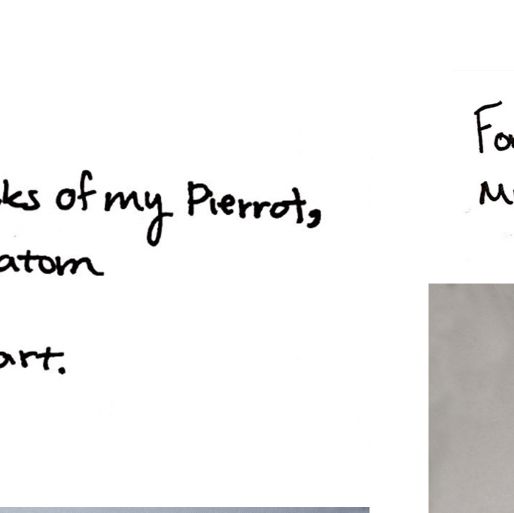 ks of my Pierrot,
atom
art.
Fo
M